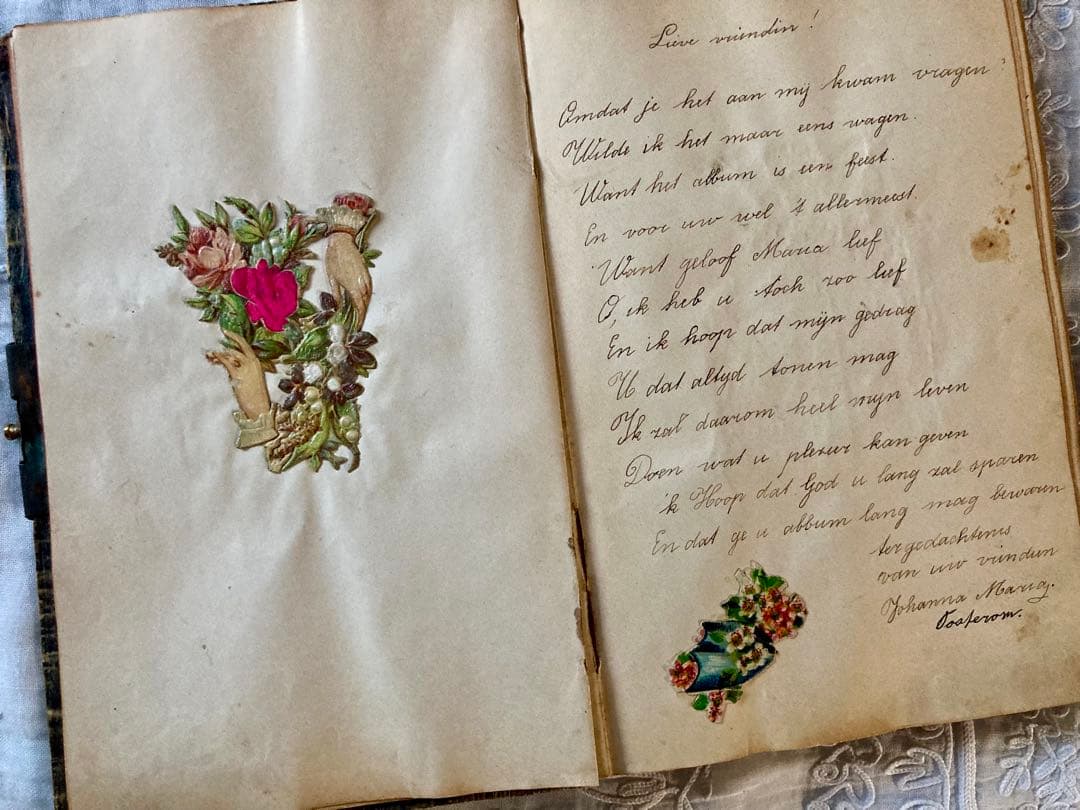 Lieve vriendin!
Omdat je het aan mij kwam vragen?
Wilde ik het maar eens wagen.
Want het album is een feest.
En voor uw wel 't allermeest.
Want geloof Maria lief
O, ik heb u toch zoo lief
En ik hoop dat mijn gedrag
U dat altyd tonen mag
Ik zal daarom heel myn leven
Doen wat u plexier kan geven
'k Hoop dat God u lang zal sparen
En dat ge u album lang mag bewaren
ter gedachtenis
van uw vriendin
Johanna Maria.
Oosterom.